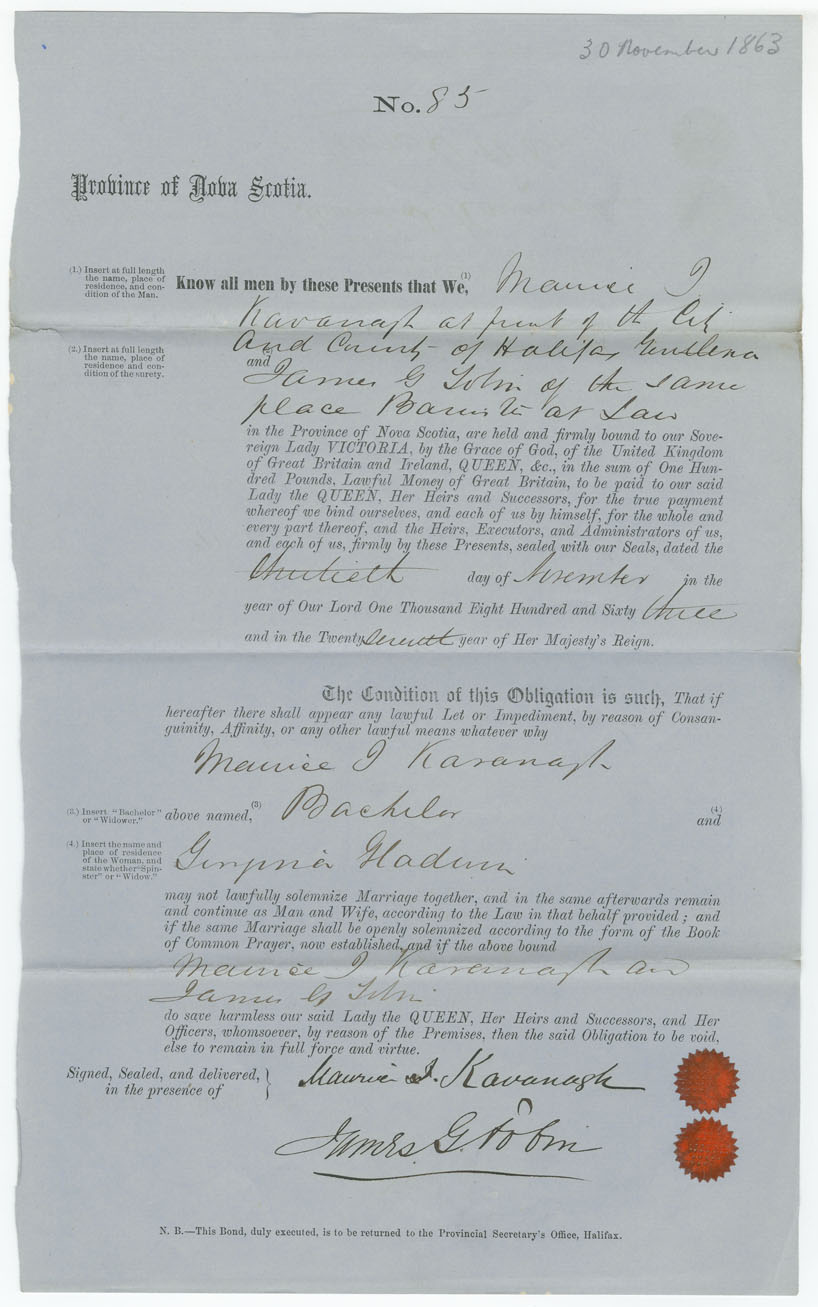 30 November 1863
No. 85
Province of Nova Scotia.
(1.) Insert at full length
the name, place of
residence, and con-
dition of the Man.
Know all men by these Presents that We, (1) Maurice J
Kavanagh at present of the City
And County of Halifax Gentleman
(2.) Insert at full length
the name, place of
residence and con-
dition of the surety.
and (2)
James G Tobin of the same
place Barrister at Law
in the Province of Nova Scotia, are held and firmly bound to our Sove-
reign Lady VICTORIA, by the Grace of God, of the United Kingdom
of Great Britain and Ireland, QUEEN, &c., in the sum of One Hun-
dred Pounds, Lawful Money of Great Britain, to be paid to our said
Lady the QUEEN, Her Heirs and Successors, for the true payment
whereof we bind ourselves, and each of us by himself, for the whole and
every part thereof, and the Heirs, Executors, and Administrators of us,
and each of us, firmly by these Presents, sealed with our Seals, dated the
Thirtieth day of November in the
year of Our Lord One Thousand Eight Hundred and Sixty three
and in the Twenty seventh year of Her Majesty's Reign.
The Condition of this Obligation is such, That if
hereafter there shall appear any lawful Let or Impediment, by reason of Consan-
guinity, Affinity, or any other lawful means whatever why
Maurice J Kavanagh
(3.) Insert "Bachelor"
or "Widower."
above named, (3) Bachelor (4) and
(4.) Insert the name and
place of residence
of the Woman, and
state whether "Spin-
ster" or "Widow."
Georgina
may not lawfully solemnize Marriage together, and in the same afterwards remain
and continue as Man and Wife, according to the Law in that behalf provided; and
if the same Marriage shall be openly solemnized according to the form of the Book
of Common Prayer, now established, and if the above bound
Maurice J Kavanagh and
James G Tobin
do save harmless our said Lady the QUEEN, Her Heirs and Successors, and Her
Officers, whomsoever, by reason of the Premises, then the said Obligation to be void,
else to remain in full force and virtue.
Signed, Sealed, and delivered,
in the presence of
Maurice J. Kavanagh
James. G. Tobin
N. B.—This Bond, duly executed, is to be returned to the Provincial Secretary's Office, Halifax.